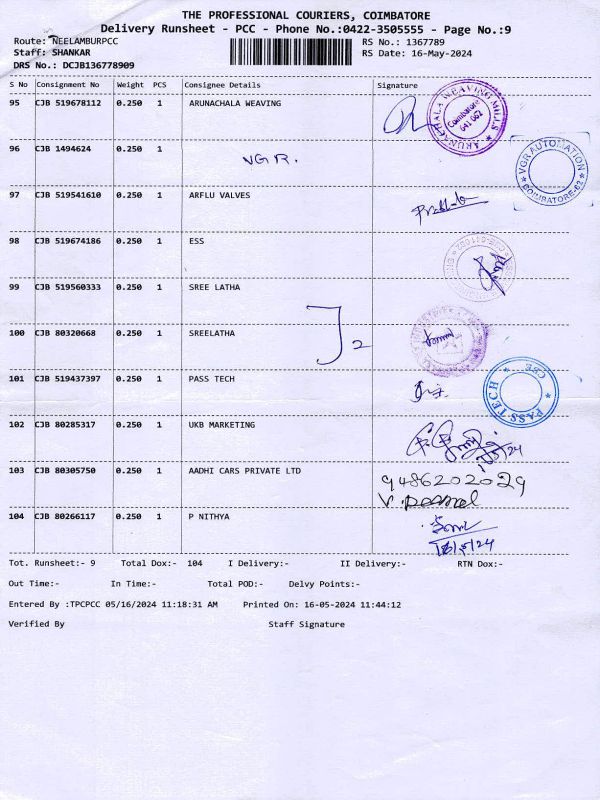 THE PROFESSIONAL COURIERS, COIMBATORE
Delivery Runsheet - PCC - Phone No.:0422-3505555 - Page No.:9
Route: NEELAMBURPCC RS No.: 1367789
Staff: SHANKAR RS Date: 16-May-2024
DRS No.: DCJB136778909
S No Consignment No Weight PCS Consignee Details Signature
95 CJB 519678112 0.250 1 ARUNACHALA WEAVING
ARUNACHALA WEAVING MILLS
Coimbatore
641 062
96 CJB 1494624 0.250 1
VGR.
VGR AUTOMATION
COIMBATORE-62
97 CJB 519541610 0.250 1 ARFLU VALVES
98 CJB 519674186 0.250 1 ESS
99 CJB 519560333 0.250 1 SREE LATHA
100 CJB 80320668 0.250 1 SREELATHA
2
101 CJB 519437397 0.250 1 PASS TECH
PASS TECH
CBE
102 CJB 80285317 0.250 1 UKB MARKETING
103 CJB 80305750 0.250 1 AADHI CARS PRIVATE LTD
9486202029
104 CJB 80266117 0.250 1 P NITHYA
16/5/24
Tot. Runsheet:- 9 Total Dox:- 104 I Delivery:- II Delivery:- RTN Dox:-
Out Time:- In Time:- Total POD:- Delvy Points:-
Entered By :TPCPCC 05/16/2024 11:18:31 AM Printed On: 16-05-2024 11:44:12
Verified By Staff Signature